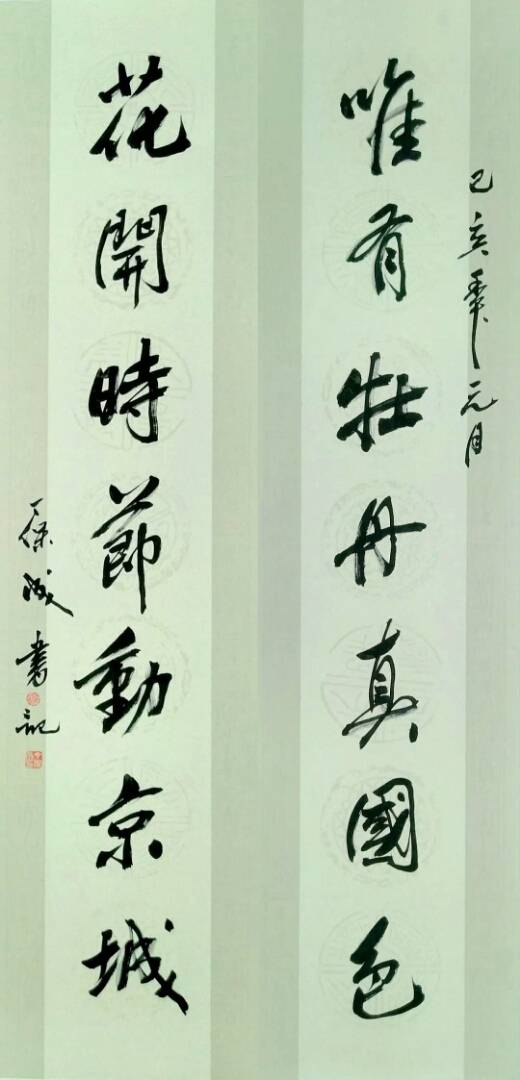 己亥年元月
唯有牡丹真國色
花開時節動京城
保成書記